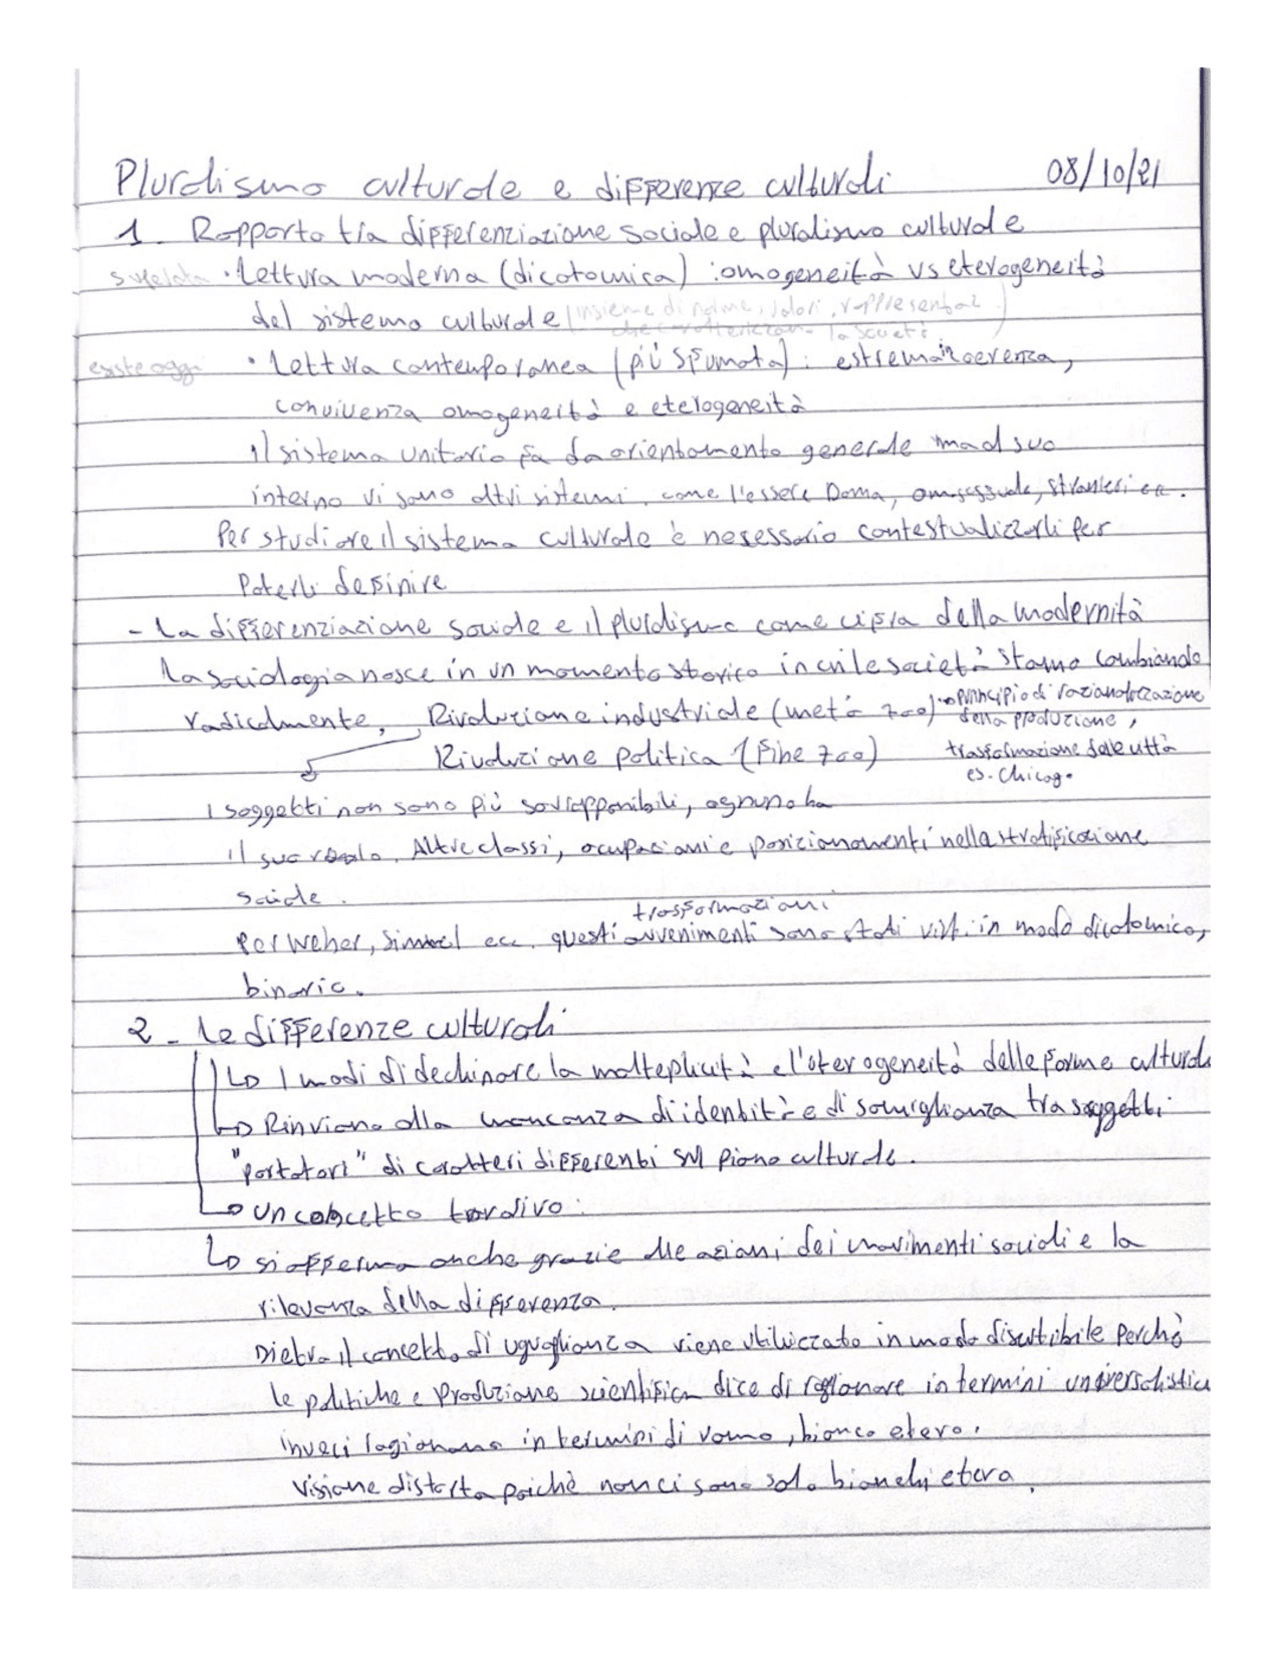 Pluralismo culturale e differenze culturali 08/10/21
1. Rapporto tra differenziazione sociale e pluralismo culturale
superata · Lettura moderna (dicotomica) : omogeneità vs eterogeneità
del sistema culturale (insieme di norme, valori, rappresentaz.
che caratterizzano la società)
esiste oggi · Lettura contemporanea (più sfumata) : estrema incoerenza,
convivenza omogeneità e eterogeneità
Il sistema unitario fa da orientamento generale ma al suo
interno vi sono altri sistemi, come l'essere Donna, omosessuale, stranieri ecc.
Per studiare il sistema culturale è necessario contestualizzarli per
Poterli definire
- La differenziazione sociale e il pluralismo come cifra della modernità
La sociologia nasce in un momento storico in cui le società stanno cambiando
radicalmente, Rivoluzione industriale (metà 700) → principio di razionalizzazione
della produzione,
Rivoluzione politica (fine 700) trasformazione delle città
es. Chicago
I soggetti non sono più sovrapponibili, ognuno ha
il suo ruolo. Altre classi, ocupazioni e posizionamenti nella stratificazione
sociale.
trasformazioni
Per Weber, Simmel ecc. questi avvenimenti sono stati visti in modo dicotomico,
binario.
2 - Le differenze culturali
↳ I modi di declinare la molteplicità e l'eterogeneità delle forme culturali
↳ Rinviano alla mancanza di identità e di somiglianza tra soggetti
"portatori" di caratteri differenti sul piano culturale.
↳ Un concetto tardivo:
↳ si afferma anche grazie alle azioni dei movimenti sociali e la
rilevanza della differenza.
Dietro il concetto di uguaglianza viene utilizzato in modo discutibile perchè
le politiche e produzione scientifica dice di ragionare in termini universalistici
inveci ragionano in termini di uomo, bianco etero.
Visione distorta poichè non ci sono solo bianchi etero.